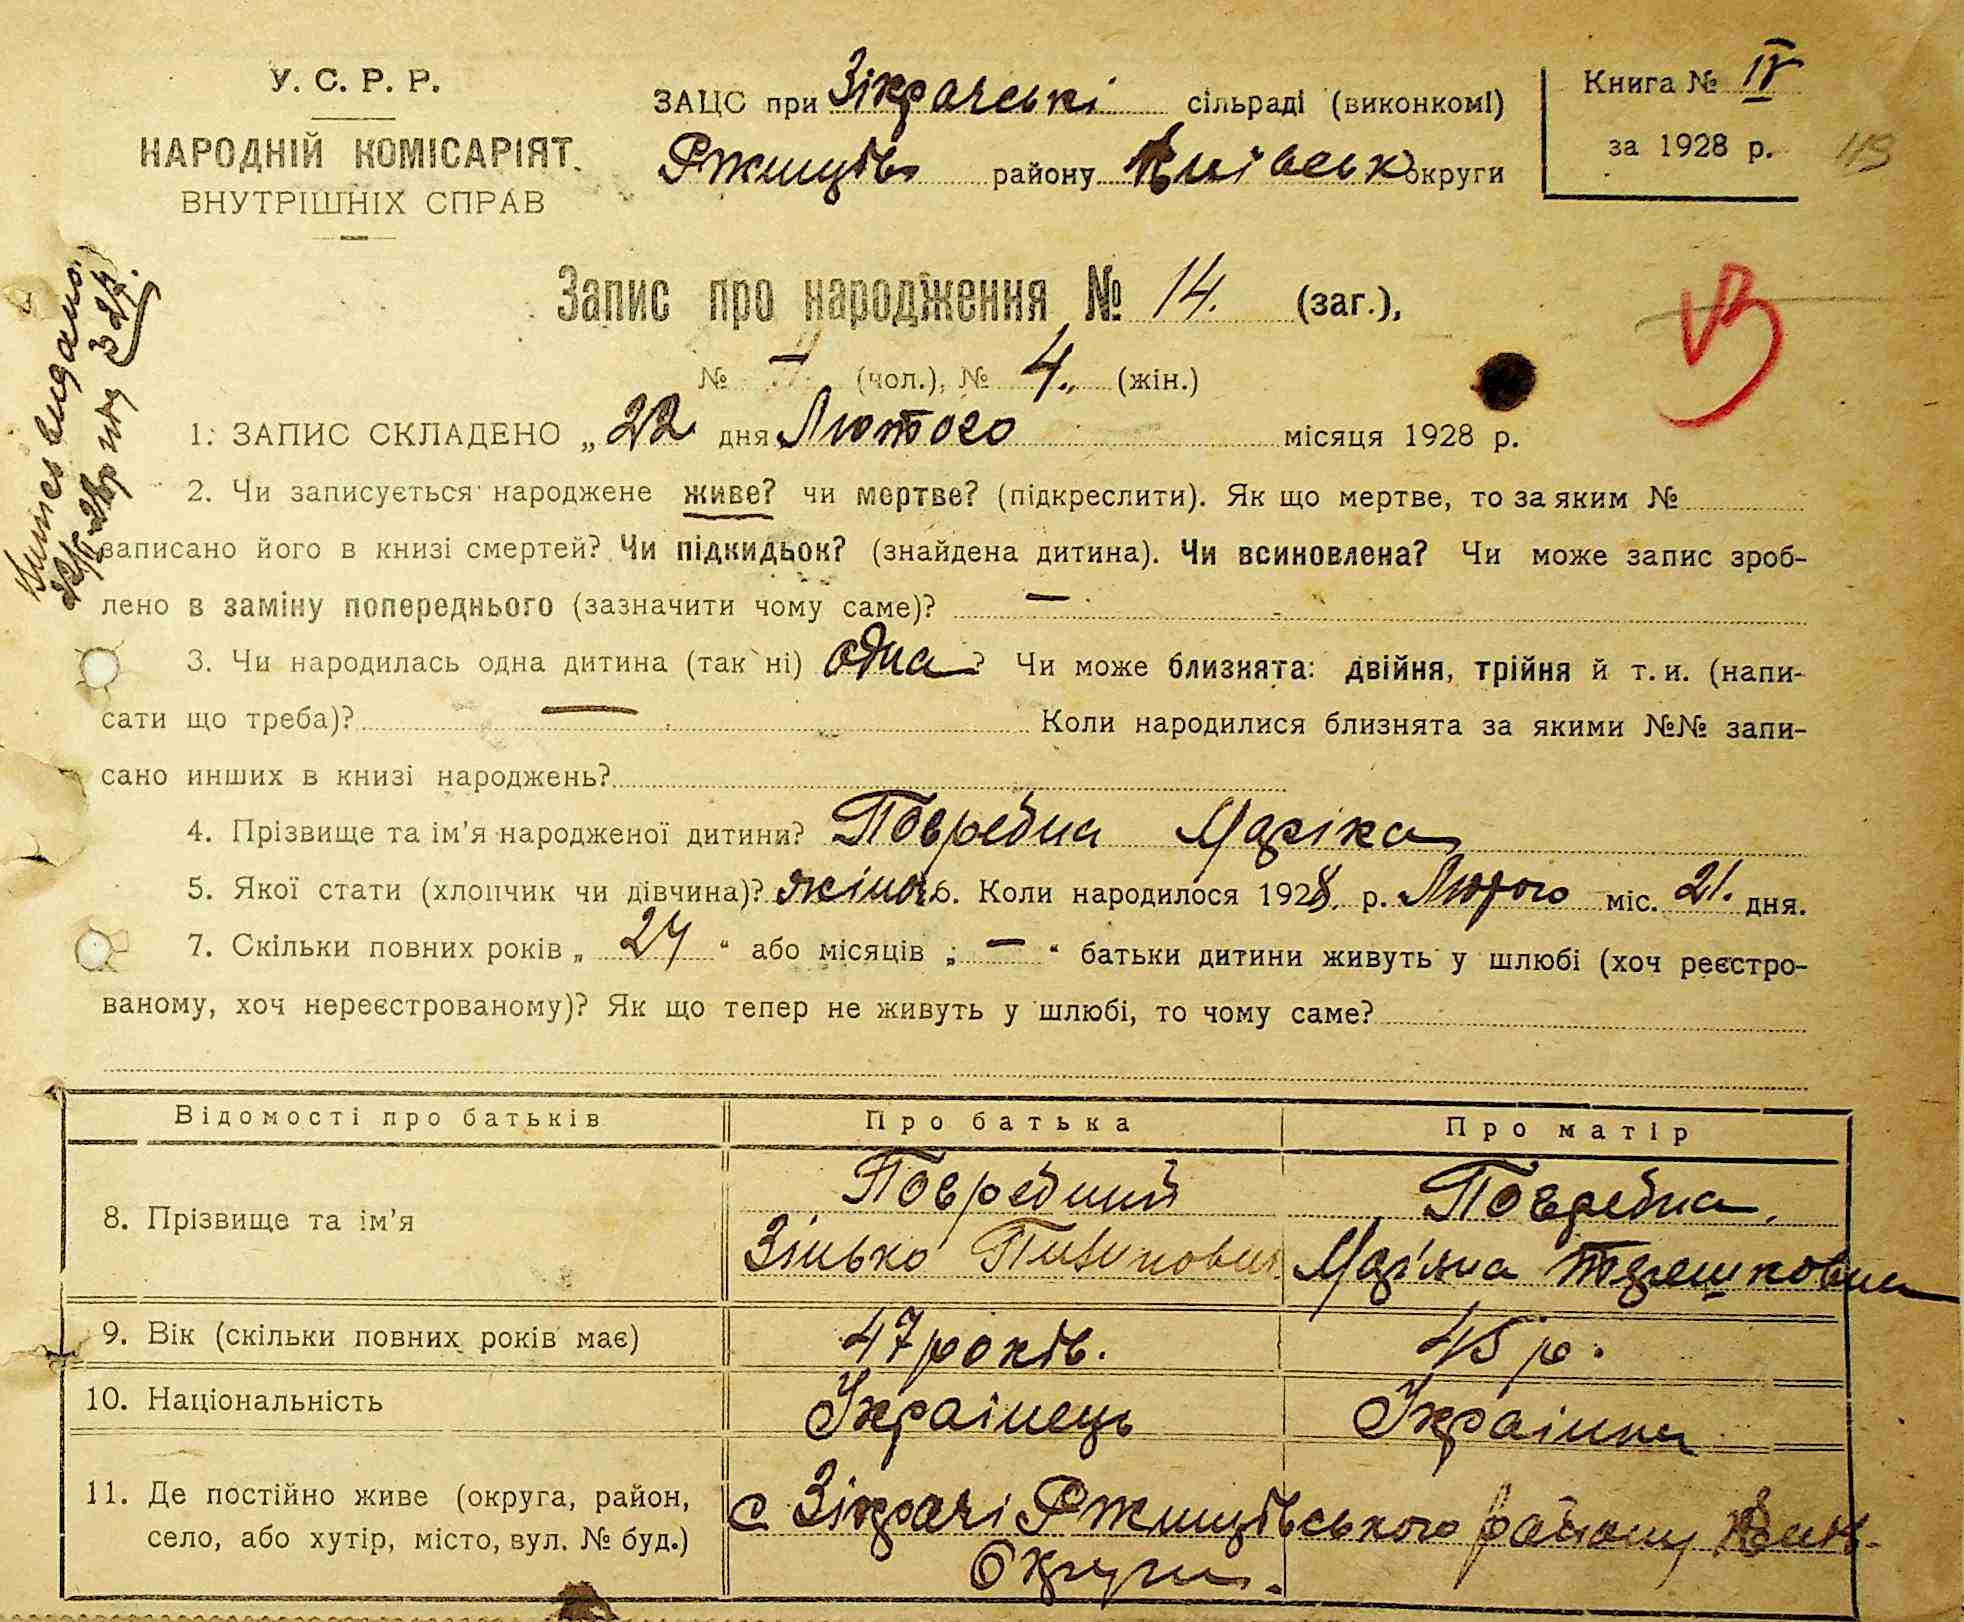 У. С. Р. Р.
НАРОДНІЙ КОМІСАРІЯТ
ВНУТРІШНІХ СПРАВ
ЗАЦС при Зікрачські сільраді (виконкомі)
Ржищів району Київськ округи
Книга № IV
за 1928 р.
Запис про народження № 14. (заг.),
№ — (чол.), № 4. (жін.)
1. ЗАПИС СКЛАДЕНО „ 22 дня Лютого місяця 1928 р.
2. Чи записується народжене живе? чи мертве? (підкреслити). Як що мертве, то за яким №
записано його в книзі смертей? Чи підкидьок? (знайдена дитина). Чи всиновлена? Чи може запис зроб-
лено в заміну попереднього (зазначити чому саме)? —
3. Чи народилась одна дитина (так ні) одна? Чи може близнята: двійня, трійня й т. и. (напи-
сати що треба)? — Коли народилися близнята за якими №№ запи-
сано инших в книзі народжень?
4. Прізвище та ім'я народженої дитини? Погребна Маріка
5. Якої стати (хлопчик чи дівчина)? жіноч 6. Коли народилося 1928 р. Лютого міс. 21. дня.
7. Скільки повних років „ 27 “ або місяців „ — “ батьки дитини живуть у шлюбі (хоч реєстро-
ваному, хоч нереєстрованому)? Як що тепер не живуть у шлюбі, то чому саме?
Відомості про батьків Про батька Про матір
8. Прізвище та ім'я
Погребний
Зінько
Погребна
Мар'яна Терешковна
9. Вік (скільки повних років має) 47 років. 45 р.
10. Національність Українець Українка
11. Де постійно живе (округа, район,
село, або хутір, місто, вул. № буд.)
с Зікрачі Ржищівського району Київ.
Округи.